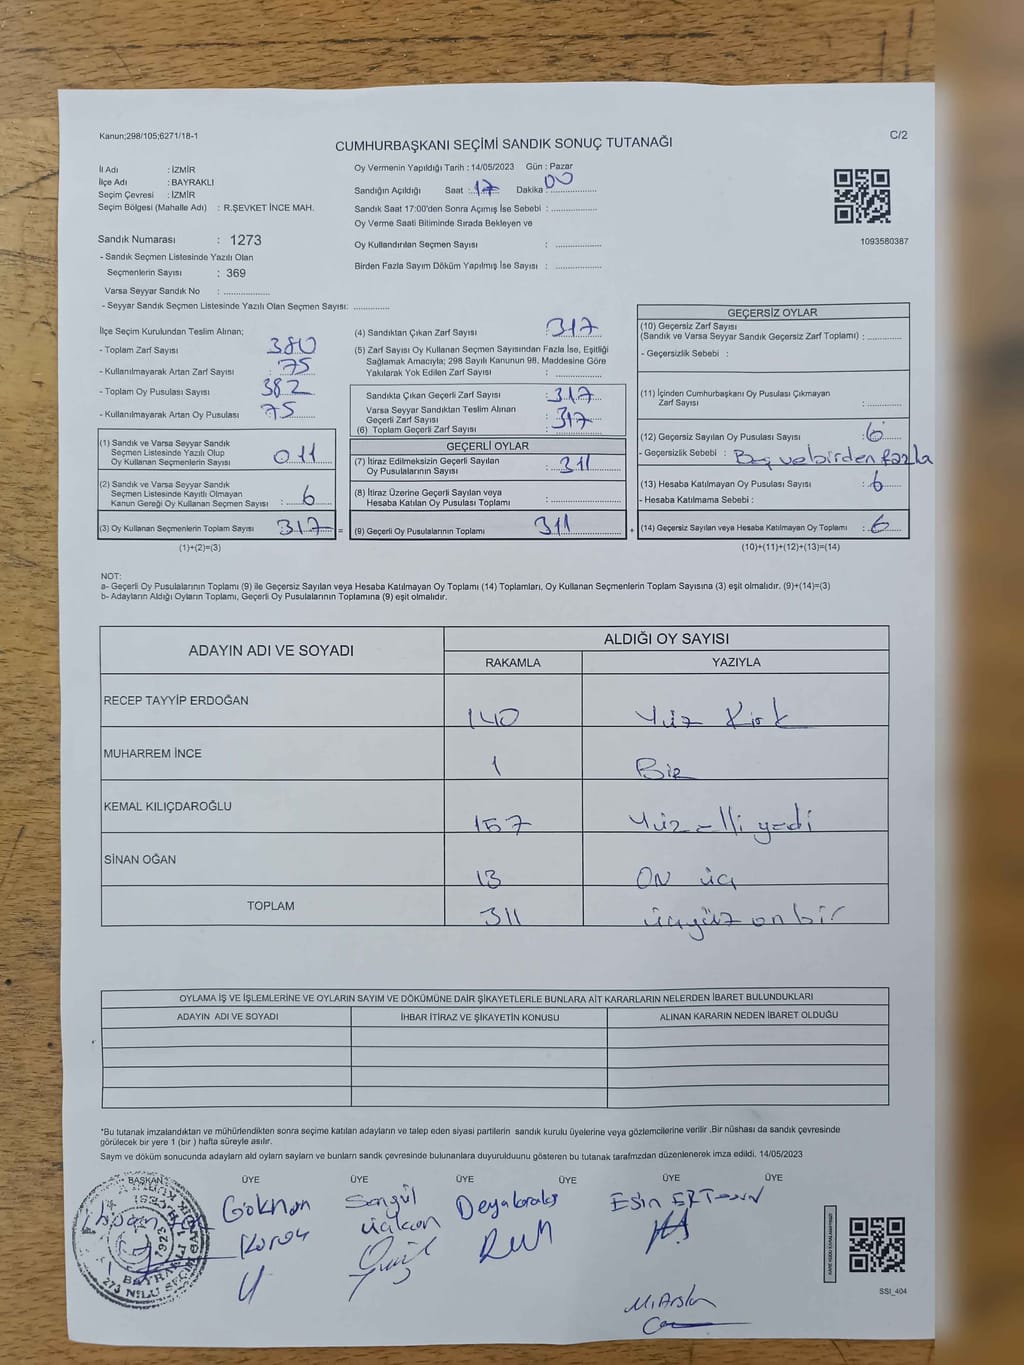 Kanun;298/105;6271/18-1
C/2
CUMHURBAŞKANI SEÇİMİ SANDIK SONUÇ TUTANAĞI
İl Adı : İZMİR
İlçe Adı : BAYRAKLI
Seçim Çevresi : İZMİR
Seçim Bölgesi (Mahalle Adı) : R.ŞEVKET İNCE MAH.
Sandık Numarası : 1273
- Sandık Seçmen Listesinde Yazılı Olan
Seçmenlerin Sayısı : 369
Varsa Seyyar Sandık No : ..............
- Seyyar Sandık Seçmen Listesinde Yazılı Olan Seçmen Sayısı: ............
Oy Vermenin Yapıldığı Tarih : 14/05/2023 Gün : Pazar
Sandığın Açıldığı Saat : 17 Dakika : 00
Sandık Saat 17:00'den Sonra Açımış İse Sebebi : ..............
Oy Verme Saati Bitiminde Sırada Bekleyen ve
Oy Kullandırılan Seçmen Sayısı : ..............
Birden Fazla Sayım Döküm Yapılmış İse Sayısı : ..............
1093580387
İlçe Seçim Kurulundan Teslim Alınan;
- Toplam Zarf Sayısı : 380
- Kullanılmayarak Artan Zarf Sayısı : 75
- Toplam Oy Pusulası Sayısı : 382
- Kullanılmayarak Artan Oy Pusulası : 75
(1) Sandık ve Varsa Seyyar Sandık
Seçmen Listesinde Yazılı Olup
Oy Kullanan Seçmenlerin Sayısı : 011
(2) Sandık ve Varsa Seyyar Sandık
Seçmen Listesinde Kayıtlı Olmayan
Kanun Gereği Oy Kullanan Seçmen Sayısı : 6
(3) Oy Kullanan Seçmenlerin Toplam Sayısı : 317 =
(1)+(2)=(3)
(4) Sandıktan Çıkan Zarf Sayısı : 317
(5) Zarf Sayısı Oy Kullanan Seçmen Sayısından Fazla İse, Eşitliği
Sağlamak Amacıyla; 298 Sayılı Kanunun 98. Maddesine Göre
Yakılarak Yok Edilen Zarf Sayısı : ..............
Sandıkta Çıkan Geçerli Zarf Sayısı : 317
Varsa Seyyar Sandıktan Teslim Alınan
Geçerli Zarf Sayısı : 317
(6) Toplam Geçerli Zarf Sayısı
GEÇERLİ OYLAR
(7) İtiraz Edilmeksizin Geçerli Sayılan
Oy Pusulalarının Sayısı : 311
(8) İtiraz Üzerine Geçerli Sayılan veya
Hesaba Katılan Oy Pusulası Toplamı : ..............
(9) Geçerli Oy Pusulalarının Toplamı 311 +
GEÇERSİZ OYLAR
(10) Geçersiz Zarf Sayısı
(Sandık ve Varsa Seyyar Sandık Geçersiz Zarf Toplamı) : ............
- Geçersizlik Sebebi :
(11) İçinden Cumhurbaşkanı Oy Pusulası Çıkmayan
Zarf Sayısı : ............
(12) Geçersiz Sayılan Oy Pusulası Sayısı : 6
- Geçersizlik Sebebi : Boş ve birden fazla
(13) Hesaba Katılmayan Oy Pusulası Sayısı : 6
- Hesaba Katılmama Sebebi :
(14) Geçersiz Sayılan veya Hesaba Katılmayan Oy Toplamı : 6
(10)+(11)+(12)+(13)=(14)
NOT:
a- Geçerli Oy Pusulalarının Toplamı (9) ile Geçersiz Sayılan veya Hesaba Katılmayan Oy Toplamı (14) Toplamları, Oy Kullanan Seçmenlerin Toplam Sayısına (3) eşit olmalıdır. (9)+(14)=(3)
b- Adayların Aldığı Oyların Toplamı, Geçerli Oy Pusulalarının Toplamına (9) eşit olmalıdır.
ADAYIN ADI VE SOYADI
ALDIĞI OY SAYISI
RAKAMLA YAZIYLA
RECEP TAYYİP ERDOĞAN 140 Yüz Kırk
MUHARREM İNCE 1 Bir
KEMAL KILIÇDAROĞLU 157 Yüz elli yedi
SİNAN OĞAN 13 ON üç
TOPLAM 311 üçyüz on bir
OYLAMA İŞ VE İŞLEMLERİNE VE OYLARIN SAYIM VE DÖKÜMÜNE DAİR ŞİKAYETLERLE BUNLARA AİT KARARLARIN NELERDEN İBARET BULUNDUKLARI
ADAYIN ADI VE SOYADI İHBAR İTİRAZ VE ŞİKAYETİN KONUSU ALINAN KARARIN NEDEN İBARET OLDUĞU
*Bu tutanak imzalandıktan ve mühürlendikten sonra seçime katılan adayların ve talep eden siyasi partilerin sandık kurulu üyelerine veya gözlemcilerine verilir .Bir nüshası da sandık çevresinde
görülecek bir yere 1 (bir ) hafta süreyle asılır.
Saym ve döküm sonucunda adayların ald oyların sayların ve bunların sandk çevresinde bulunanlara duyurulduunu gösteren bu tutanak tarafmzdan düzenlenerek imza edildi. 14/05/2023
BAŞKAN ÜYE ÜYE ÜYE ÜYE ÜYE ÜYE
Gökhan
Songül
Esin
M. Arslan
SSI_404